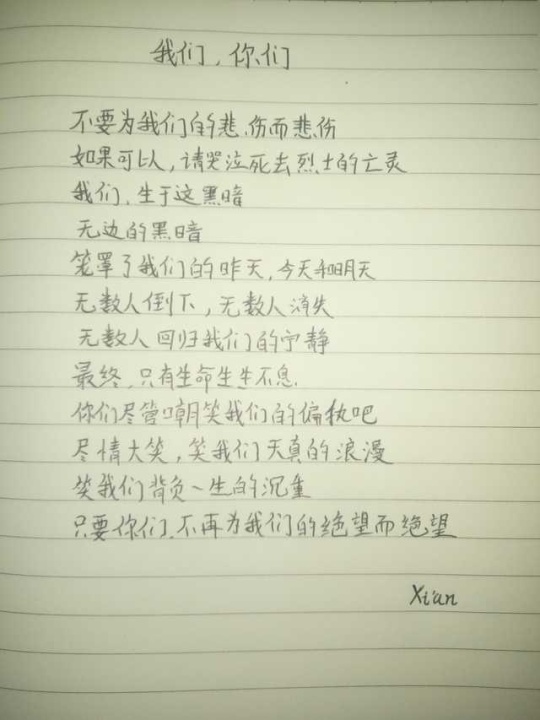 我们，你们
不要为我们的悲伤而悲伤
如果可以，请哭泣死去烈士的亡灵
我们，生于这黑暗
无边的黑暗
笼罩了我们的昨天，今天和明天
无数人倒下，无数人消失
无数人回归我们的宁静
最终，只有生命生生不息.
你们尽管嘲笑我们的偏执吧
尽情大笑，笑我们天真的浪漫
笑我们背负一生的沉重
只要你们，不再为我们的绝望而绝望
Xian